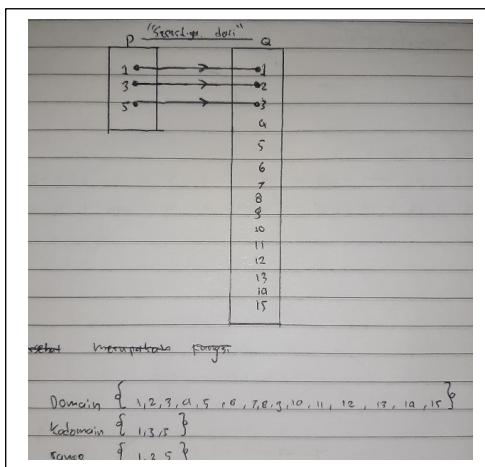 "Sepertiga dari"
P Q
1 1
3 2
5 3
4
5
6
7
8
9
10
11
12
13
14
15
merupakan fungsi
Domain { 1, 2, 3, 4, 5, 6, 7, 8, 9, 10, 11, 12, 13, 14, 15 }
Kodomain { 1, 3, 5 }
{ 1, 2, 5 }